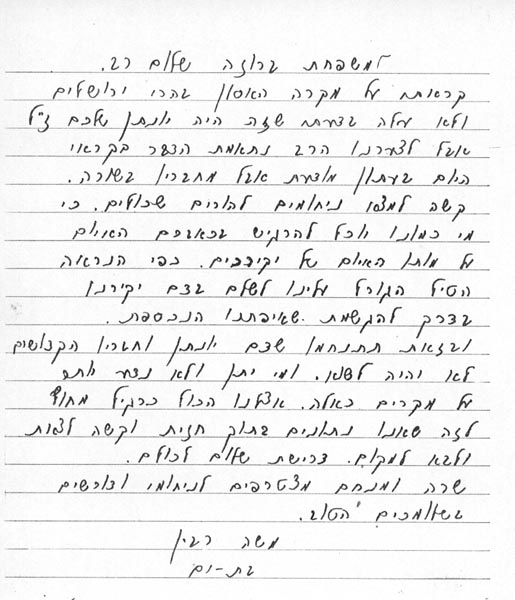 למשפחת ברוזה שלום רב.
קראתי על מקרה האסון בהרי ירושלים
ולא עלה בדעתי שזה היה יונתן שלכם ז"ל
אבל לצערנו הרב נתאמת הצער בקראי
היום בעתון מודעת אבל מחבריו בשורה.
קשה למצוא ניחומים להורים שכולים. כי
מי כמונו יוכל להרגיש בכאבכם האיום
על מותו האיום של יקירכים. כפי הנראה
הטיל הגורל עלינו לשלם בדם יקירנו
בדרך להגשמת שאיפתנו הנכספת.
ובזאת תתנחמו שדם יונתן וחבריו הקדושים
לא יהיה לשוא. ומי יתן ולא נדע יותר
על מקרים כאלה. אצלנו הכול כרגיל מחוץ
לזה שאנו נתונים בתוך חזית וקשה לצאת
ולבא למקום. דרישת שלום לכולם.
שרה ומנחם מצטרפים לניחומי ודורשים
בשלומכים הטוב.
משה רבין
בת-ים